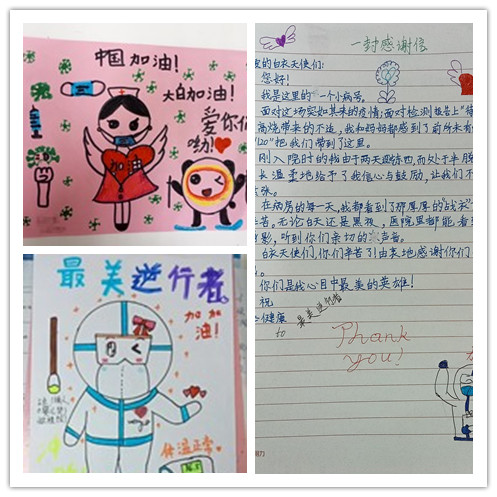 中国加油!
大白加油!
爱你们
呦!
加油
最美逆行者
加加
油!
体温正常
一封感谢信
的白衣天使们:
您好!
我是这里的一个小病号。
面对这场突如其来的疫情,面对检测报告上"
高烧带来的不适,我和妈妈都感到了前所未有
120"把我们带到了这里。
刚入院时的我由于两天
长温柔地给予了我信心与鼓励,让我们不
在病房的每一天,我都看到了那厚厚的"战衣"
无论白天还是黑夜,医院里都能看到
影,听到你们亲切的声音。
白衣天使们,你们辛苦了!由衷地感谢你们
你们是我心目中最美的英雄!
祝
健康
to 最美逆行者
Thank
you!